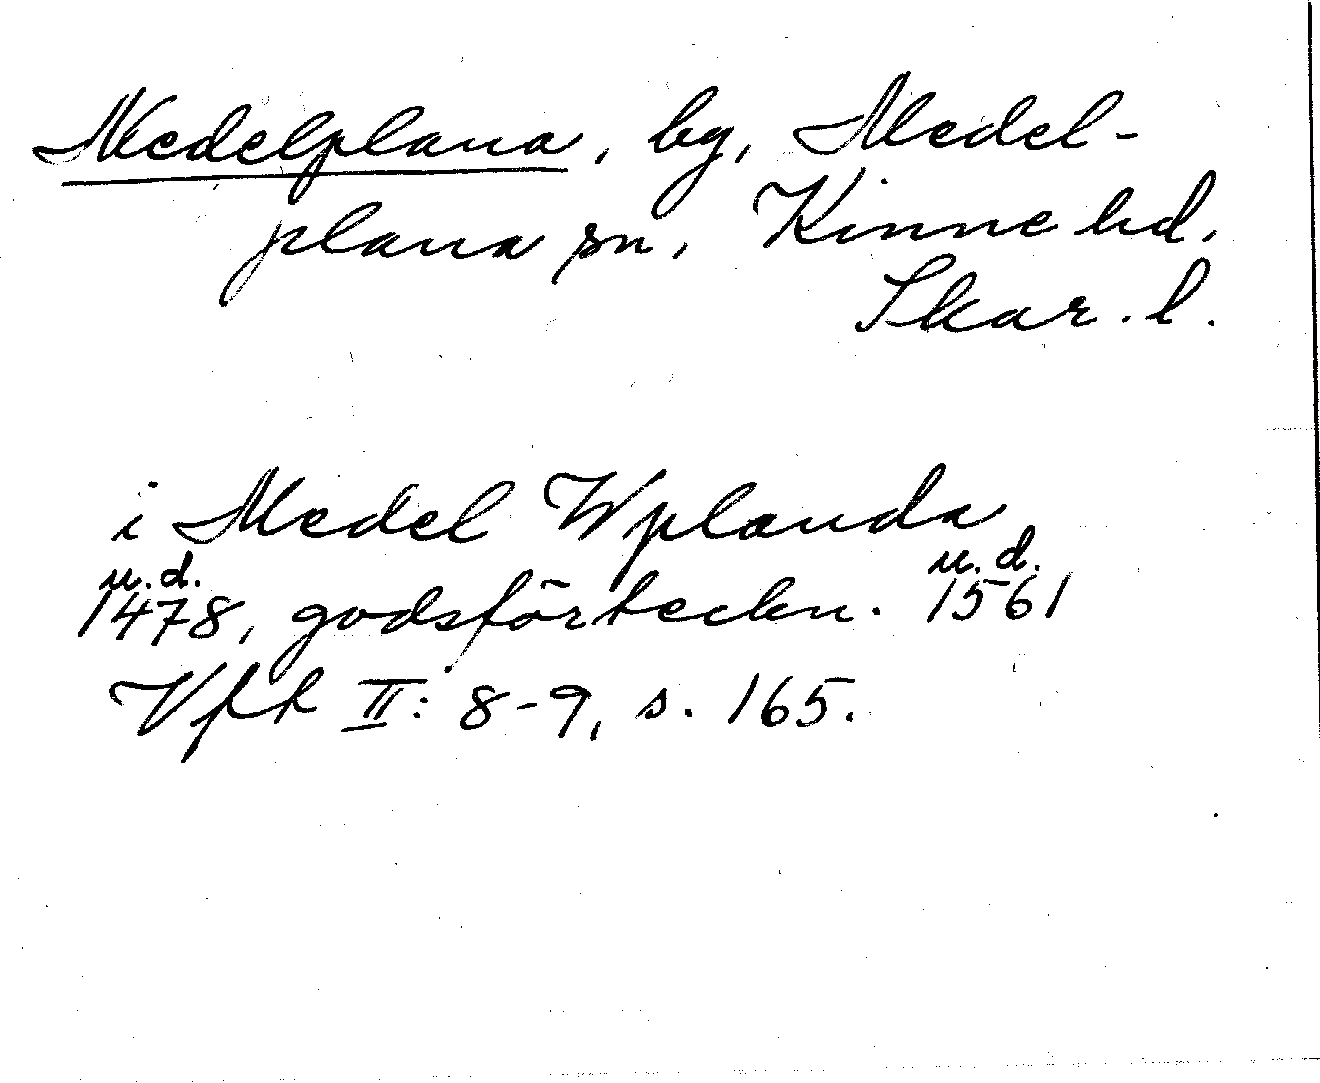 Medelplana, by, Medel-
plana sn, Kinne hd.
Skar. l.
i Medel Wplanda
u.d. u.d.
1478, godsförteckn. 1561
Vft II: 8-9, s. 165.